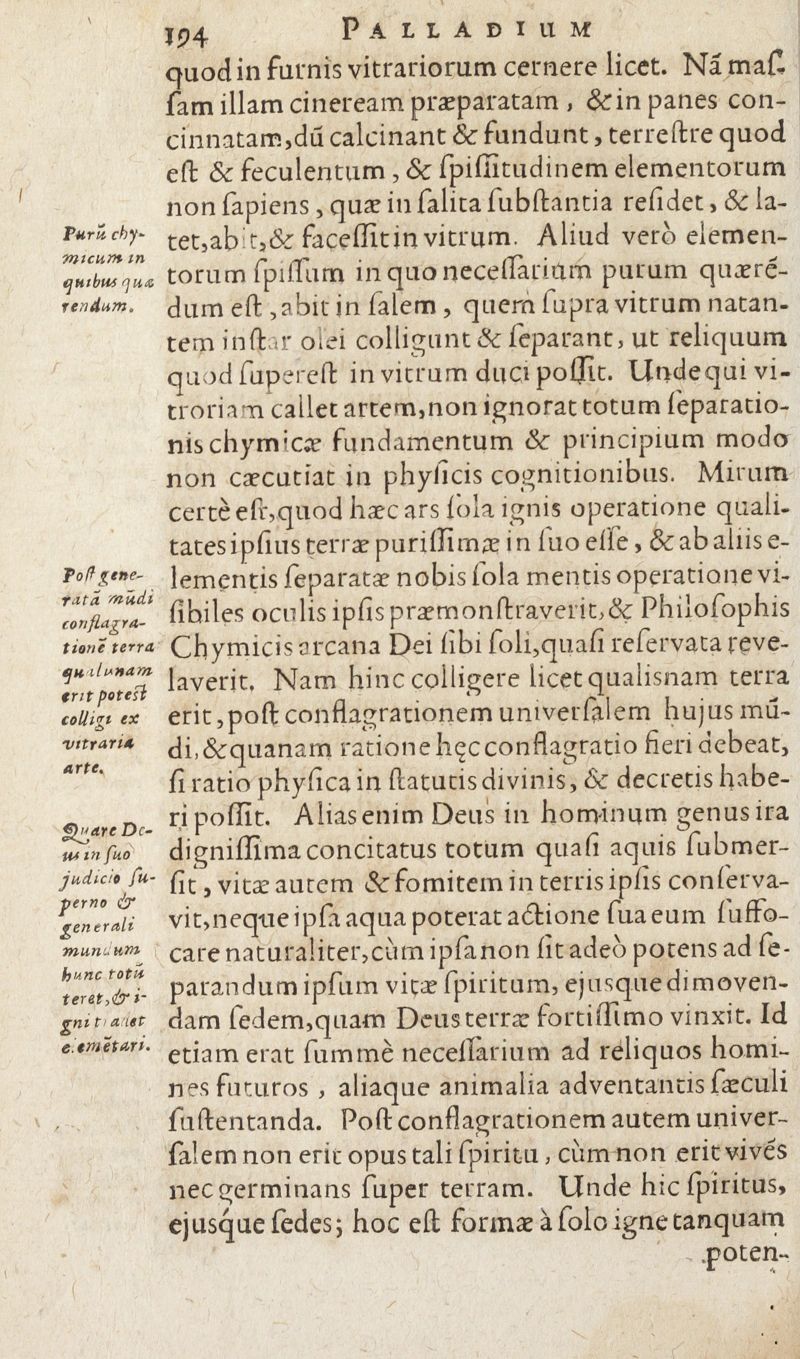 194 PALLADIUM
quod in furnis vitrariorum cernere licet. Nã maſ-
ſam illam cineream præparatam, & in panes con-
cinnatam, dũ calcinant & fundunt, terreſtre quod
eſt & feculentum, & ſpiſſitudinem elementorum
non ſapiens, quæ in ſalita ſubſtantia reſidet, & la-
tet, abit, & faceſſit in vitrum. Aliud verò elemen-
torum ſpiſſum in quo neceſſarium purum quæré-
dum eſt, abit in ſalem, quem ſupra vitrum natan-
tem inſtar olei colligunt & ſeparant, ut reliquum
quod ſupereſt in vitrum duci poſſit. Unde qui vi-
troriam callet artem, non ignorat totum ſeparatio-
nis chymicæ fundamentum & principium modo
non cæcutiat in phyſicis cognitionibus. Mirum
certè eſt, quod hæc ars ſola ignis operatione quali-
tates ipſius terræ puriſſimæ in ſuo eſſe, & ab aliis e-
lementis ſeparatæ nobis ſola mentis operatione vi-
ſibiles oculis ipſis præmonſtraverit, & Philoſophis
Chymicis arcana Dei ſibi ſoli, quaſi reſervata reve-
laverit. Nam hinc colligere licet qualisnam terra
erit, poſt conflagrationem univerſalem hujus mũ-
di, & quanam ratione hęc conflagratio fieri debeat,
ſi ratio phyſica in ſtatutis divinis, & decretis habe-
ri poſſit. Alias enim Deus in hominum genus ira
digniſſima concitatus totum quaſi aquis ſubmer-
ſit, vitæ autem & fomitem in terris ipſis conſerva-
vit, neque ipſa aqua poterat actione ſua eum ſuffo-
care naturaliter, cùm ipſa non ſit adeò potens ad ſe-
parandum ipſum vitæ ſpiritum, ejusque dimoven-
dam ſedem, quam Deus terræ fortiſſimo vinxit. Id
etiam erat ſummè neceſſarium ad reliquos homi-
nes futuros, aliaque animalia adventantis ſæculi
ſuſtentanda. Poſt conflagrationem autem univer-
ſalem non erit opus tali ſpiritu, cùm non erit vivés
nec germinans ſuper terram. Unde hic ſpiritus,
ejusque ſedes; hoc eſt formæ à ſolo igne tanquam
poten-
Purũ chy-
micum in
quibus quæ
rendum.
Poſt gene-
ratã mũdi
conflagra-
tionẽ terra
qualunam
erit poteſt
colligi ex
vitraria
arte.
Quare De-
us in ſuo
judicio ſu-
perno &
generali
mundum
hunc totũ
teret, & i-